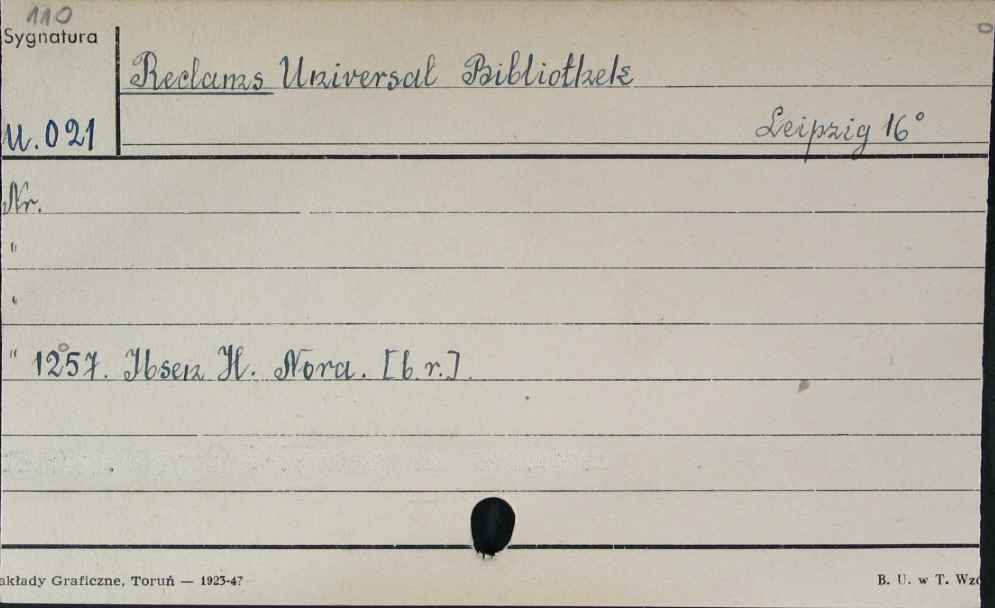 110
Sygnatura
Reclams Universal Bibliothek
U.021
Leipzig 16°
Nr.
"
"
" 1257. Ibsen H. Nora. [b.r.]
akłady Graficzne, Toruń — 1923-47
B. U. w T. Wzó